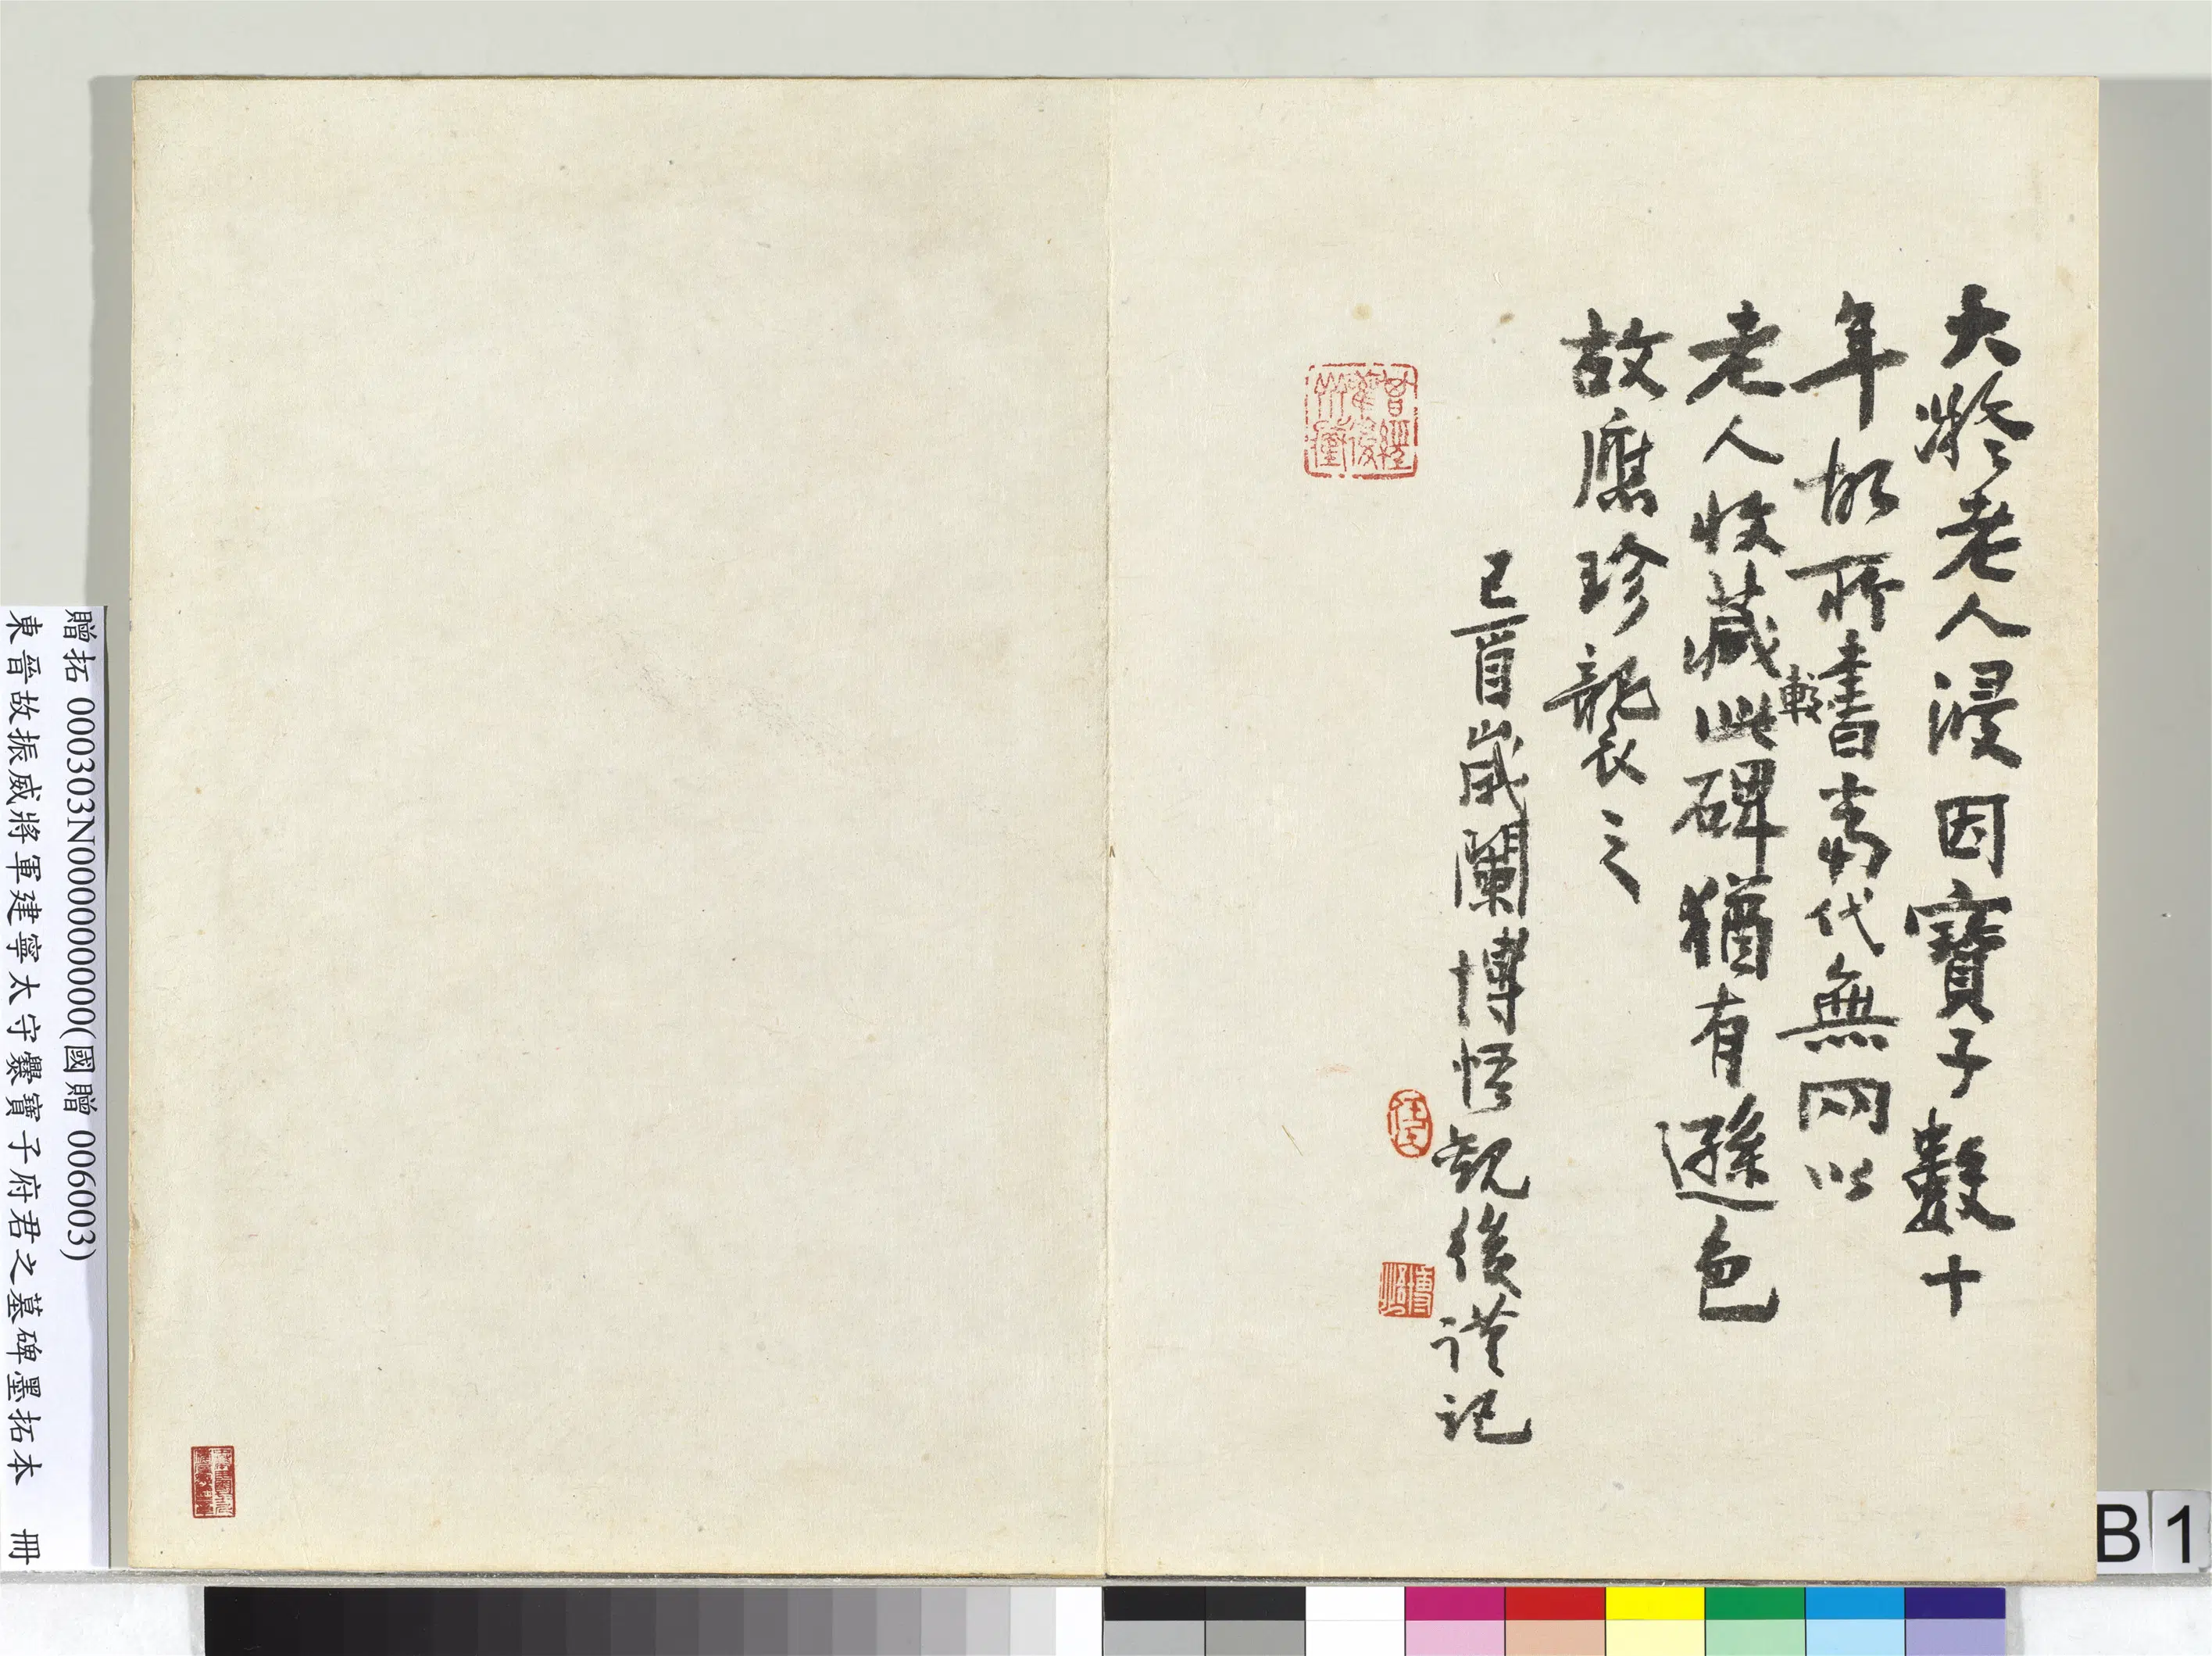 大癡老人浸因寶子數十
年故所書當代無兩以
較
老人收藏此碑猶有遜色
故應珍襲之
己酉歲闌博悟觀後謹記
曾經
灌後
博悟
贈拓 000303N000000000(國贈 006003)
東晉故振威將軍建寧太守爨寶子府君之墓碑墨拓本 冊
B 1